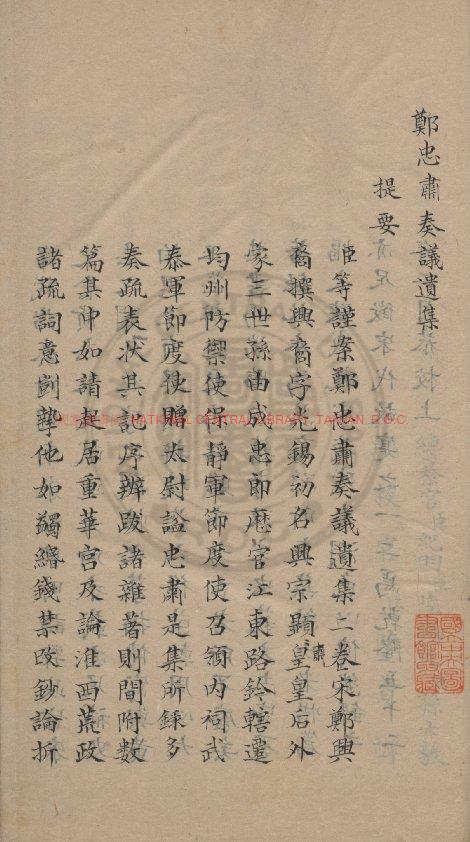 鄭忠肅奏議遺集
提要
臣等謹案鄭忠肅奏議遺集二卷宋鄭興
裔撰興裔字光錫初名興宗顯皇皇后外
肅
家三世孫由成忠郎歷官江東路鈐轄遷
均州防禦使保靜軍節度使召領內祠武
泰軍節度使贈太尉諡忠肅是集所錄多
奏疏表狀其記序辨跋諸雜著則間附數
篇其中如請起居重華宮及論淮西荒政
諸疏詞意剴摯他如蠲緡錢禁改鈔論折
NATIONAL CENTRAL LIBRARY, TAIWAN, R.O.C.